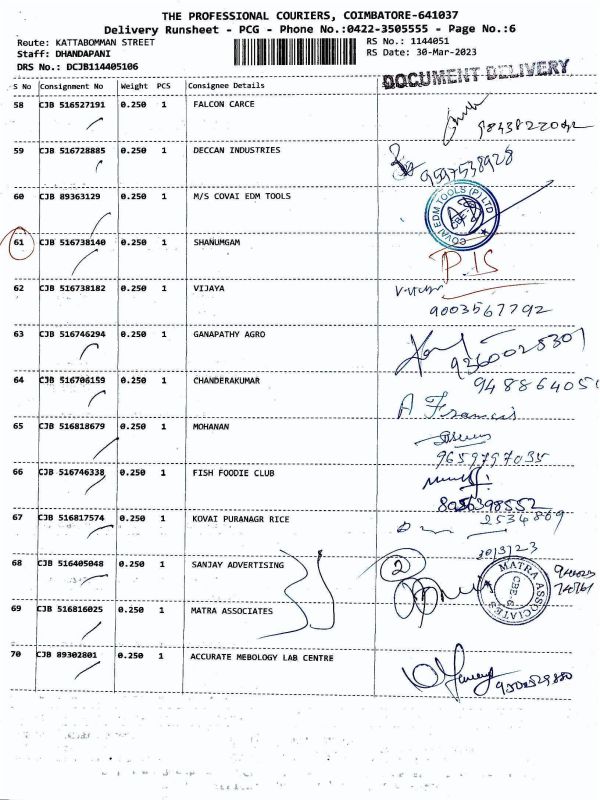 THE PROFESSIONAL COURIERS, COIMBATORE-641037
Delivery Runsheet - PCG - Phone No.:0422-3505555 - Page No.:6
Route: KATTABOMMAN STREET RS No.: 1144051
Staff: DHANDAPANI RS Date: 30-Mar-2023
DRS No.: DCJB114405106
DOCUMENT DELIVERY
S No Consignment No Weight PCS Consignee Details
58 CJB 516527191 0.250 1 FALCON CARCE
59 CJB 516728885 0.250 1 DECCAN INDUSTRIES
9597538928
60 CJB 89363129 0.250 1 M/S COVAI EDM TOOLS
COVAI EDM TOOLS (P) LTD
61 CJB 516738140 0.250 1 SHANUMGAM
P.IS
62 CJB 516738182 0.250 1 VIJAYA
9003567792
63 CJB 516746294 0.250 1 GANAPATHY AGRO
9360025301
64 CJB 516706159 0.250 1 CHANDERAKUMAR
A Francis
65 CJB 516818679 0.250 1 MOHANAN
9659797035
66 CJB 516746338 0.250 1 FISH FOODIE CLUB
8056398552
67 CJB 516817574 0.250 1 KOVAI PURANAGR RICE
2534869
30/3/23
68 CJB 516405048 0.250 1 SANJAY ADVERTISING
2
MATRA ASSOCIATES
CBE-6
69 CJB 516816025 0.250 1 MATRA ASSOCIATES
70 CJB 89302801 0.250 1 ACCURATE MEBOLOGY LAB CENTRE